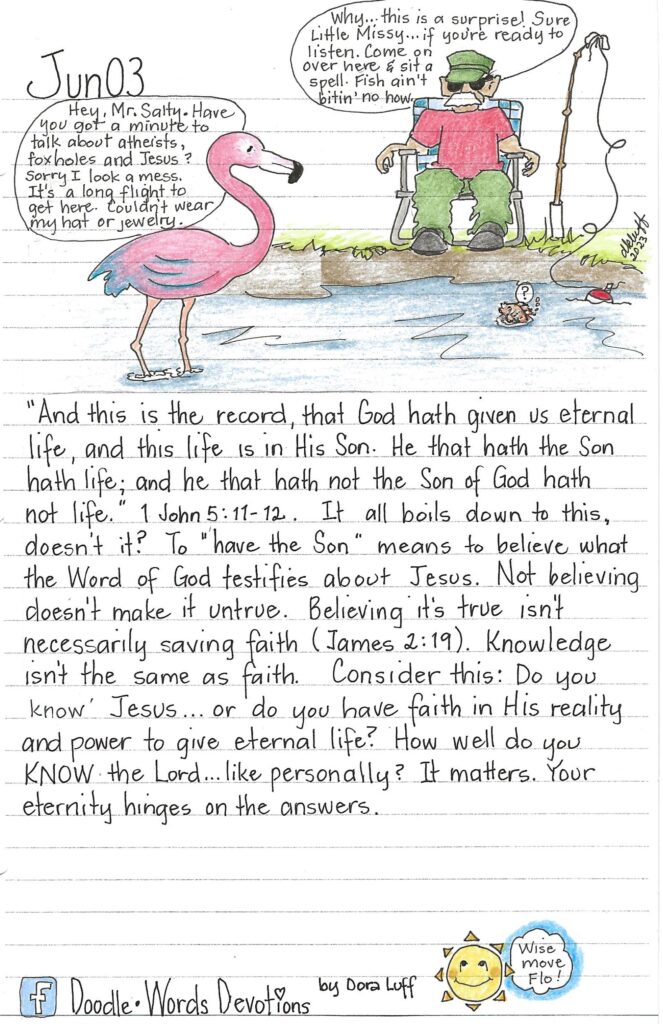 Jun03
Why...this is a surprise! Sure
Little Missy...if you're ready to
listen. Come on
over here & sit a
spell. Fish ain't
bitin' no how.
Hey, Mr. Salty. Have
you got a minute to
talk about atheists,
foxholes and Jesus?
Sorry I look a mess.
It's a long flight to
get here. Couldn't wear
my hat or jewelry.
2023
?
"And this is the record, that God hath given us eternal
life, and this life is in His Son. He that hath the Son
hath life; and he that hath not the Son of God hath
not life." 1 John 5:11-12. It all boils down to this,
doesn't it? To "have the Son" means to believe what
the Word of God testifies about Jesus. Not believing
doesn't make it untrue. Believing it's true isn't
necessarily saving faith (James 2:19). Knowledge
isn't the same as faith. Consider this: Do you
'know' Jesus... or do you have faith in His reality
and power to give eternal life? How well do you
KNOW the Lord...like personally? It matters. Your
eternity hinges on the answers.
Wise
move
Flo!
f Doodle•Words Devotions by Dora Luff